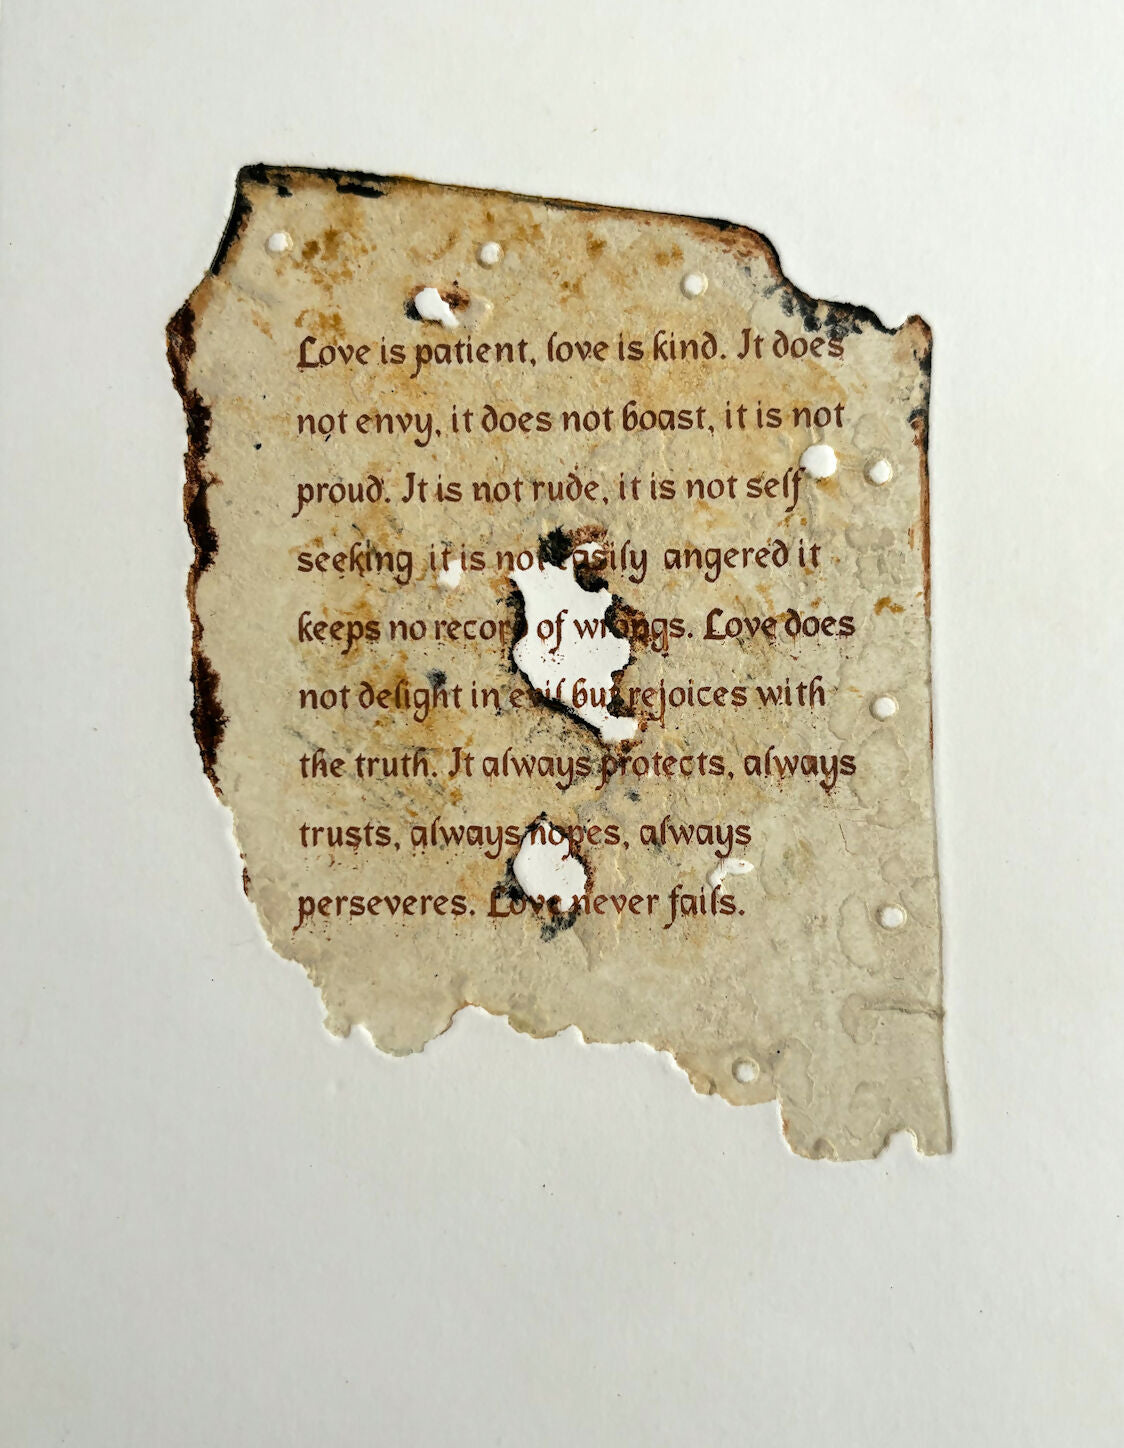 Love is patient, love is kind. It does
not envy, it does not boast, it is not
proud. It is not rude, it is not self
seeking it is not easily angered it
keeps no record of wrongs. Love does
not delight in evil but rejoices with
the truth. It always protects, always
trusts, always hopes, always
perseveres. Love never fails.